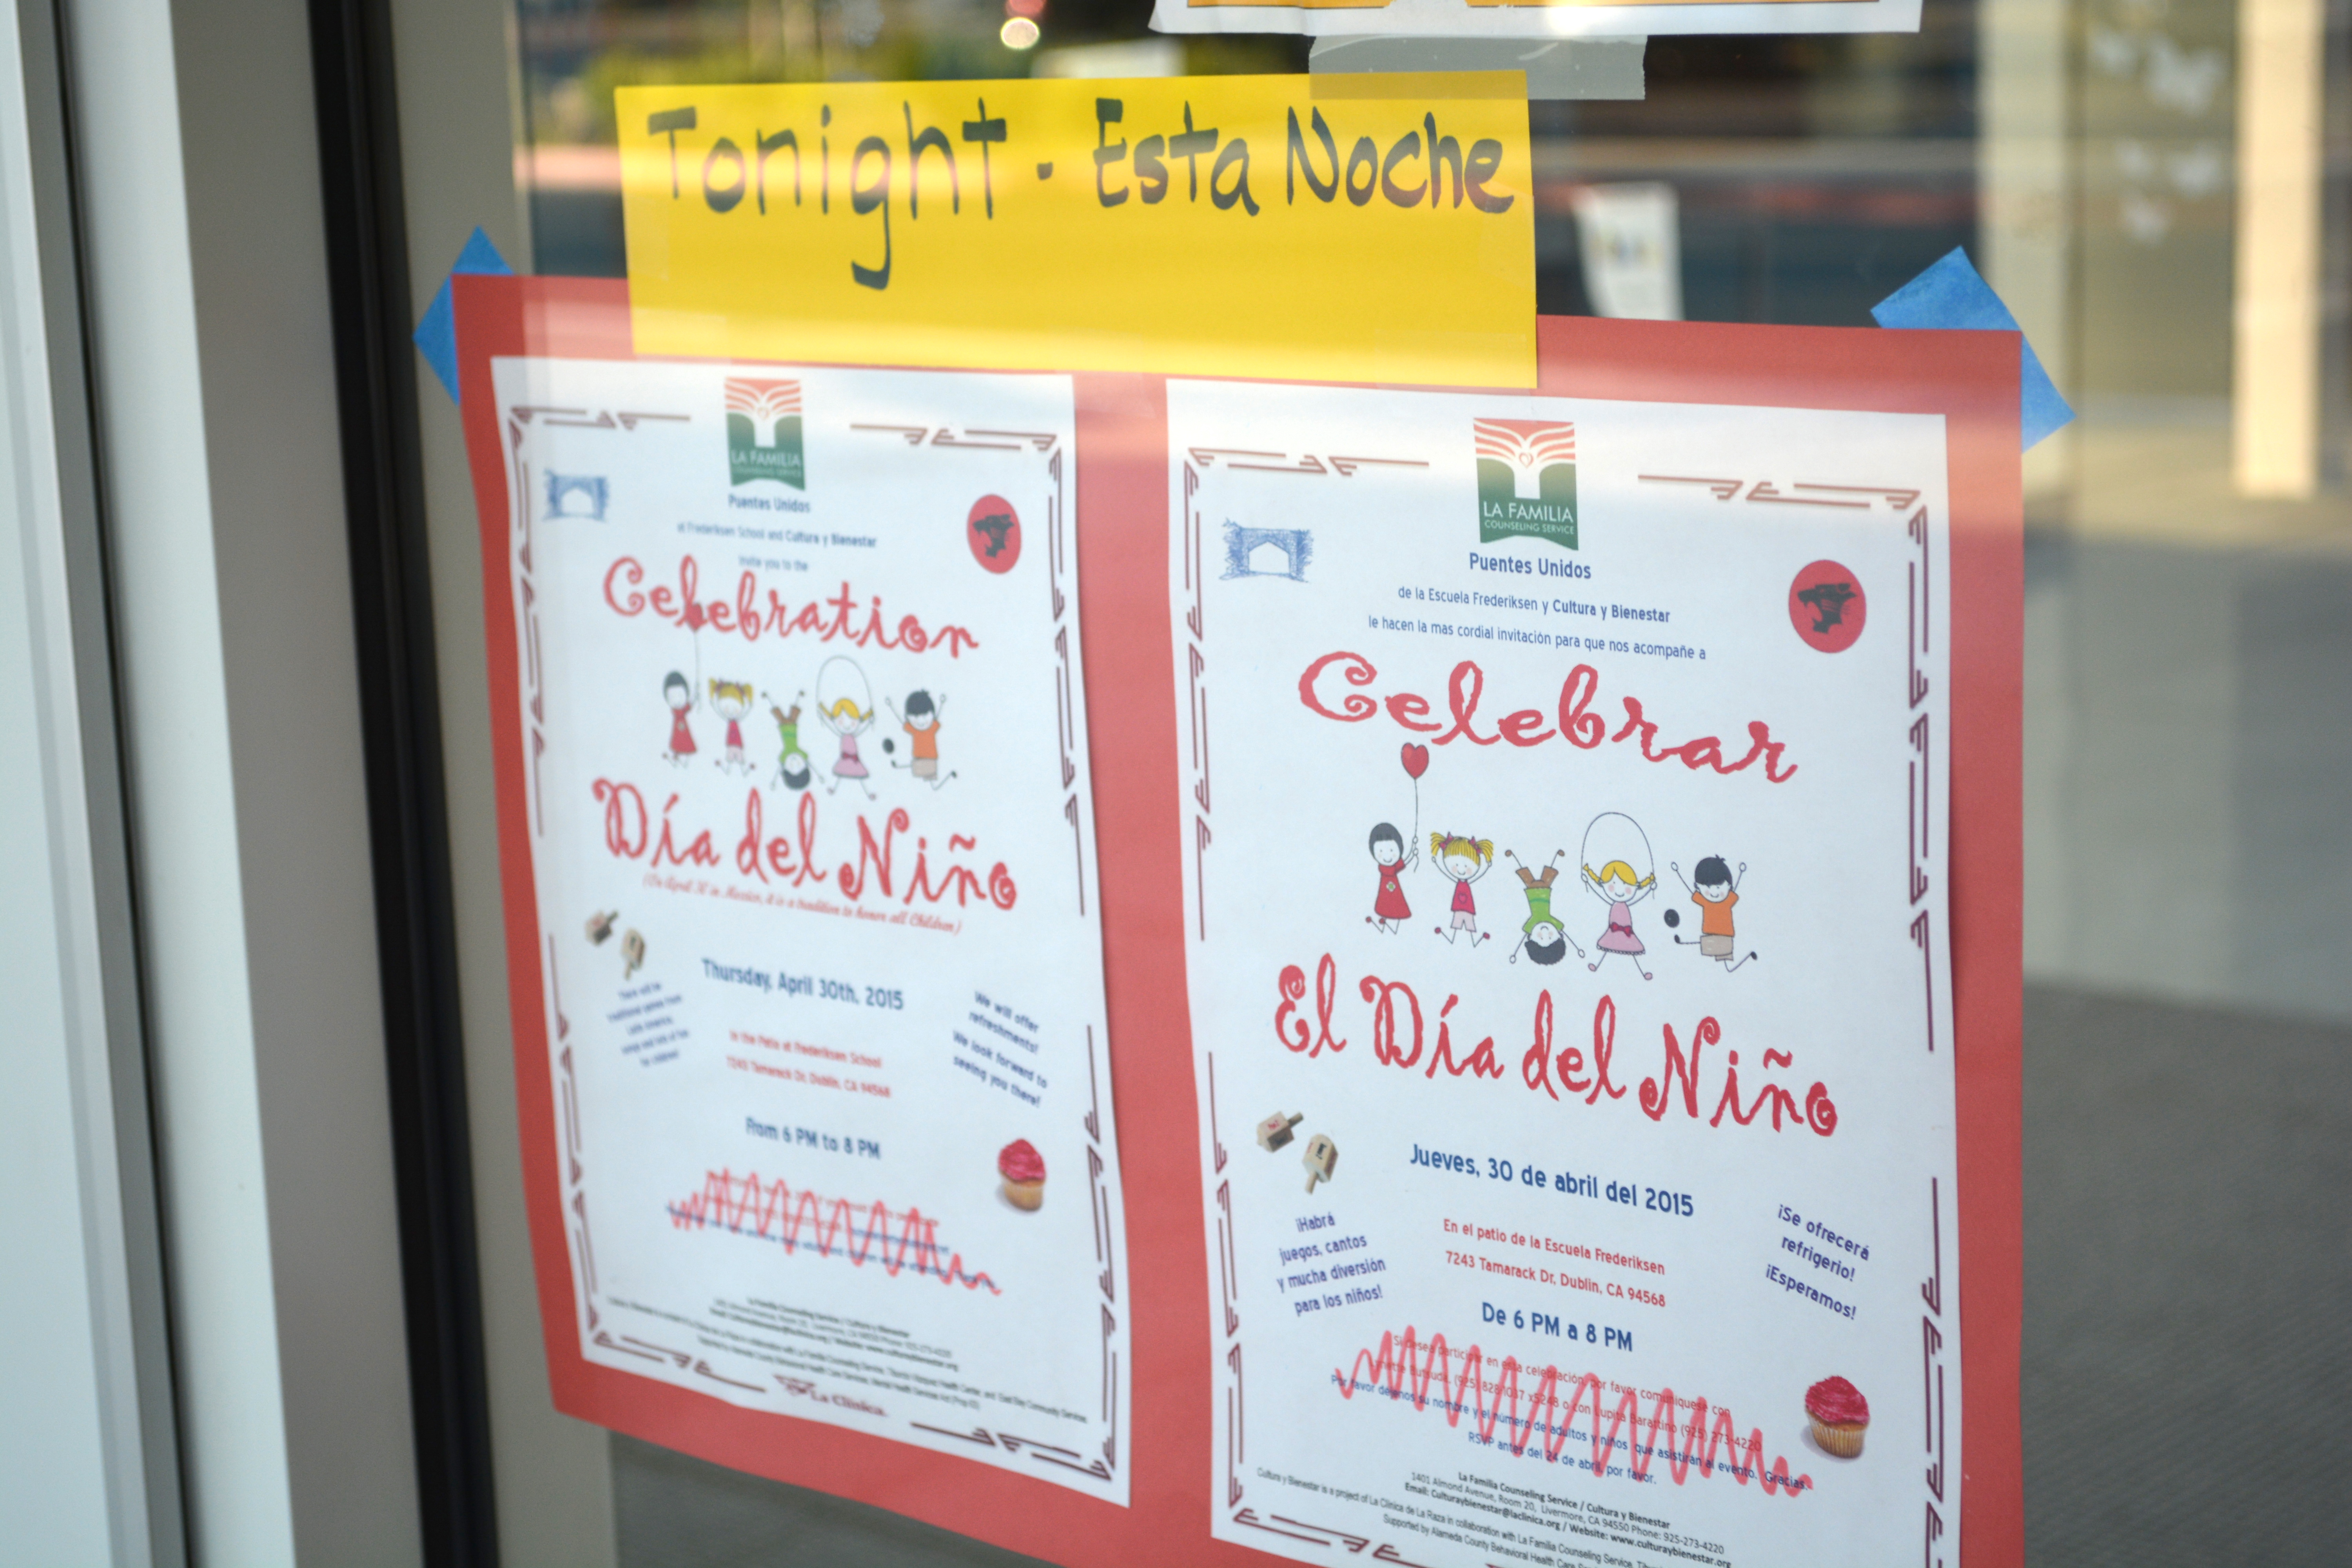 Tonight - Esta Noche
LA FAMILIA
COUNSELING SERVICE
Puentes Unidos
at Frederiksen School and Cultura y Bienestar
invite you to the
Celebration
Día del Niño
(On April 30 in Mexico, it is a tradition to honor all Children)
Thursday, April 30th, 2015
We will offer
refreshments!
We look forward to
seeing you there!
In the Patio at Frederiksen School
7243 Tamarack Dr, Dublin, CA 94568
From 6 PM to 8 PM
La Familia Counseling Service / Cultura y Bienestar
La Clínica.
LA FAMILIA
COUNSELING SERVICE
Puentes Unidos
de la Escuela Frederiksen y Cultura y Bienestar
le hacen la mas cordial invitación para que nos acompañe a
Celebrar
El Día del Niño
Jueves, 30 de abril del 2015
¡Habrá
juegos, cantos
y mucha diversión
para los niños!
En el patio de la Escuela Frederiksen
7243 Tamarack Dr, Dublin, CA 94568
¡Se ofrecerá
refrigerio!
¡Esperamos!
De 6 PM a 8 PM
Si desea participar en esta celebración, por favor comuniquese con
(925) 828-1037 x5248 o con Lupita Barattino (925) 273-4220
Por favor déjenos su nombre y el número de adultos y niños que asistiran al evento. Gracias.
RSVP antes del 24 de abril, por favor.
La Familia Counseling Service / Cultura y Bienestar
1401 Almond Avenue, Room 20, Livermore, CA 94550 Phone: 925-273-4220
Email: Culturaybienestar@laclinica.org / Website: www.culturaybienestar.org
Cultura y Bienestar is a project of La Clínica de La Raza in collaboration with La Familia Counseling Service,
Supported by Alameda County Behavioral Health Care